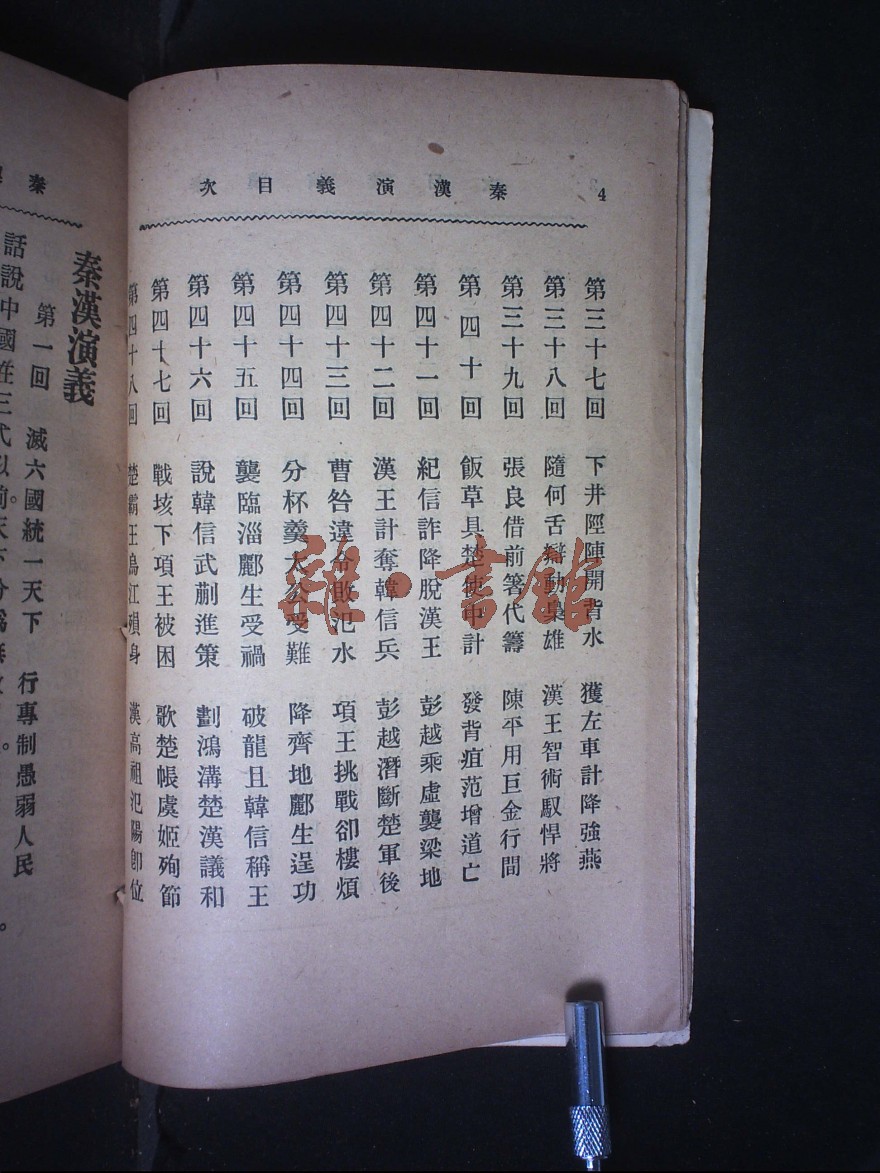 秦漢演義目次
4
第三十七回 下井陘陣開背水 獲左車計降強燕
第三十八回 隨何舌辯動梟雄 漢王智術馭悍將
第三十九回 張良借前箸代籌 陳平用巨金行間
第四十回 飯草具楚使中計 發背疽范增道亡
第四十一回 紀信詐降脫漢王 彭越乘虛襲梁地
第四十二回 漢王計奪韓信兵 彭越潛斷楚軍後
第四十三回 曹咎違令敗汜水 項王挑戰卻樓煩
第四十四回 分杯羹太公受難 降齊地酈生逞功
第四十五回 襲臨淄酈生受禍 破龍且韓信稱王
第四十六回 說韓信武蒯進策 劃鴻溝楚漢議和
第四十七回 戰垓下項王被困 歌楚帳虞姬殉節
第四十八回 楚霸王烏江殞身 漢高祖汜陽卽位
秦
秦漢演義
第一回 滅六國統一天下 行專制愚弱人民
話說中國在三代以前天下分爲
雜·書館